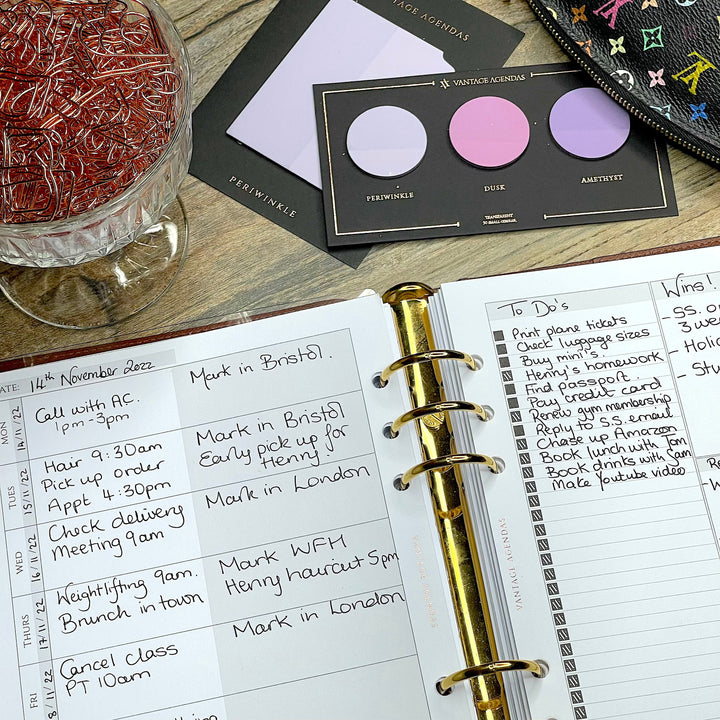 VANTAGE AGENDAS
PERIWINKLE
VANTAGE AGENDAS
PERIWINKLE
DUSK
AMETHYST
TRANSPARENT
DATE: 14th November 2022
MON
14/11/22
Call with AC.
1pm-3pm
Mark in Bristol.
TUES
15/11/22
Hair 9:30am
Pick up order
Appt 4:30pm
Mark in Bristol
Early pick up for
Henny.
WED
16/11/22
Check delivery
Meeting 9am
Mark in London
THURS
17/11/22
Weightlifting 9am.
Brunch in town
Mark WFH
Henny haircut 5pm
FRI
8/11/22
Cancel class
PT 10am
Mark in London
VANTAGE AGENDAS
To Do's
Print plane tickets
Check luggage sizes
Buy mini's.
Henny's homework
Find passport.
Pay credit card
Renew gym membership
Reply to S.S. email
Chase up Amazon
Book lunch with Tom
Book drinks with Sam
Make Youtube video
Wins!
- SS. o
3 wee
- Holic
- Stu